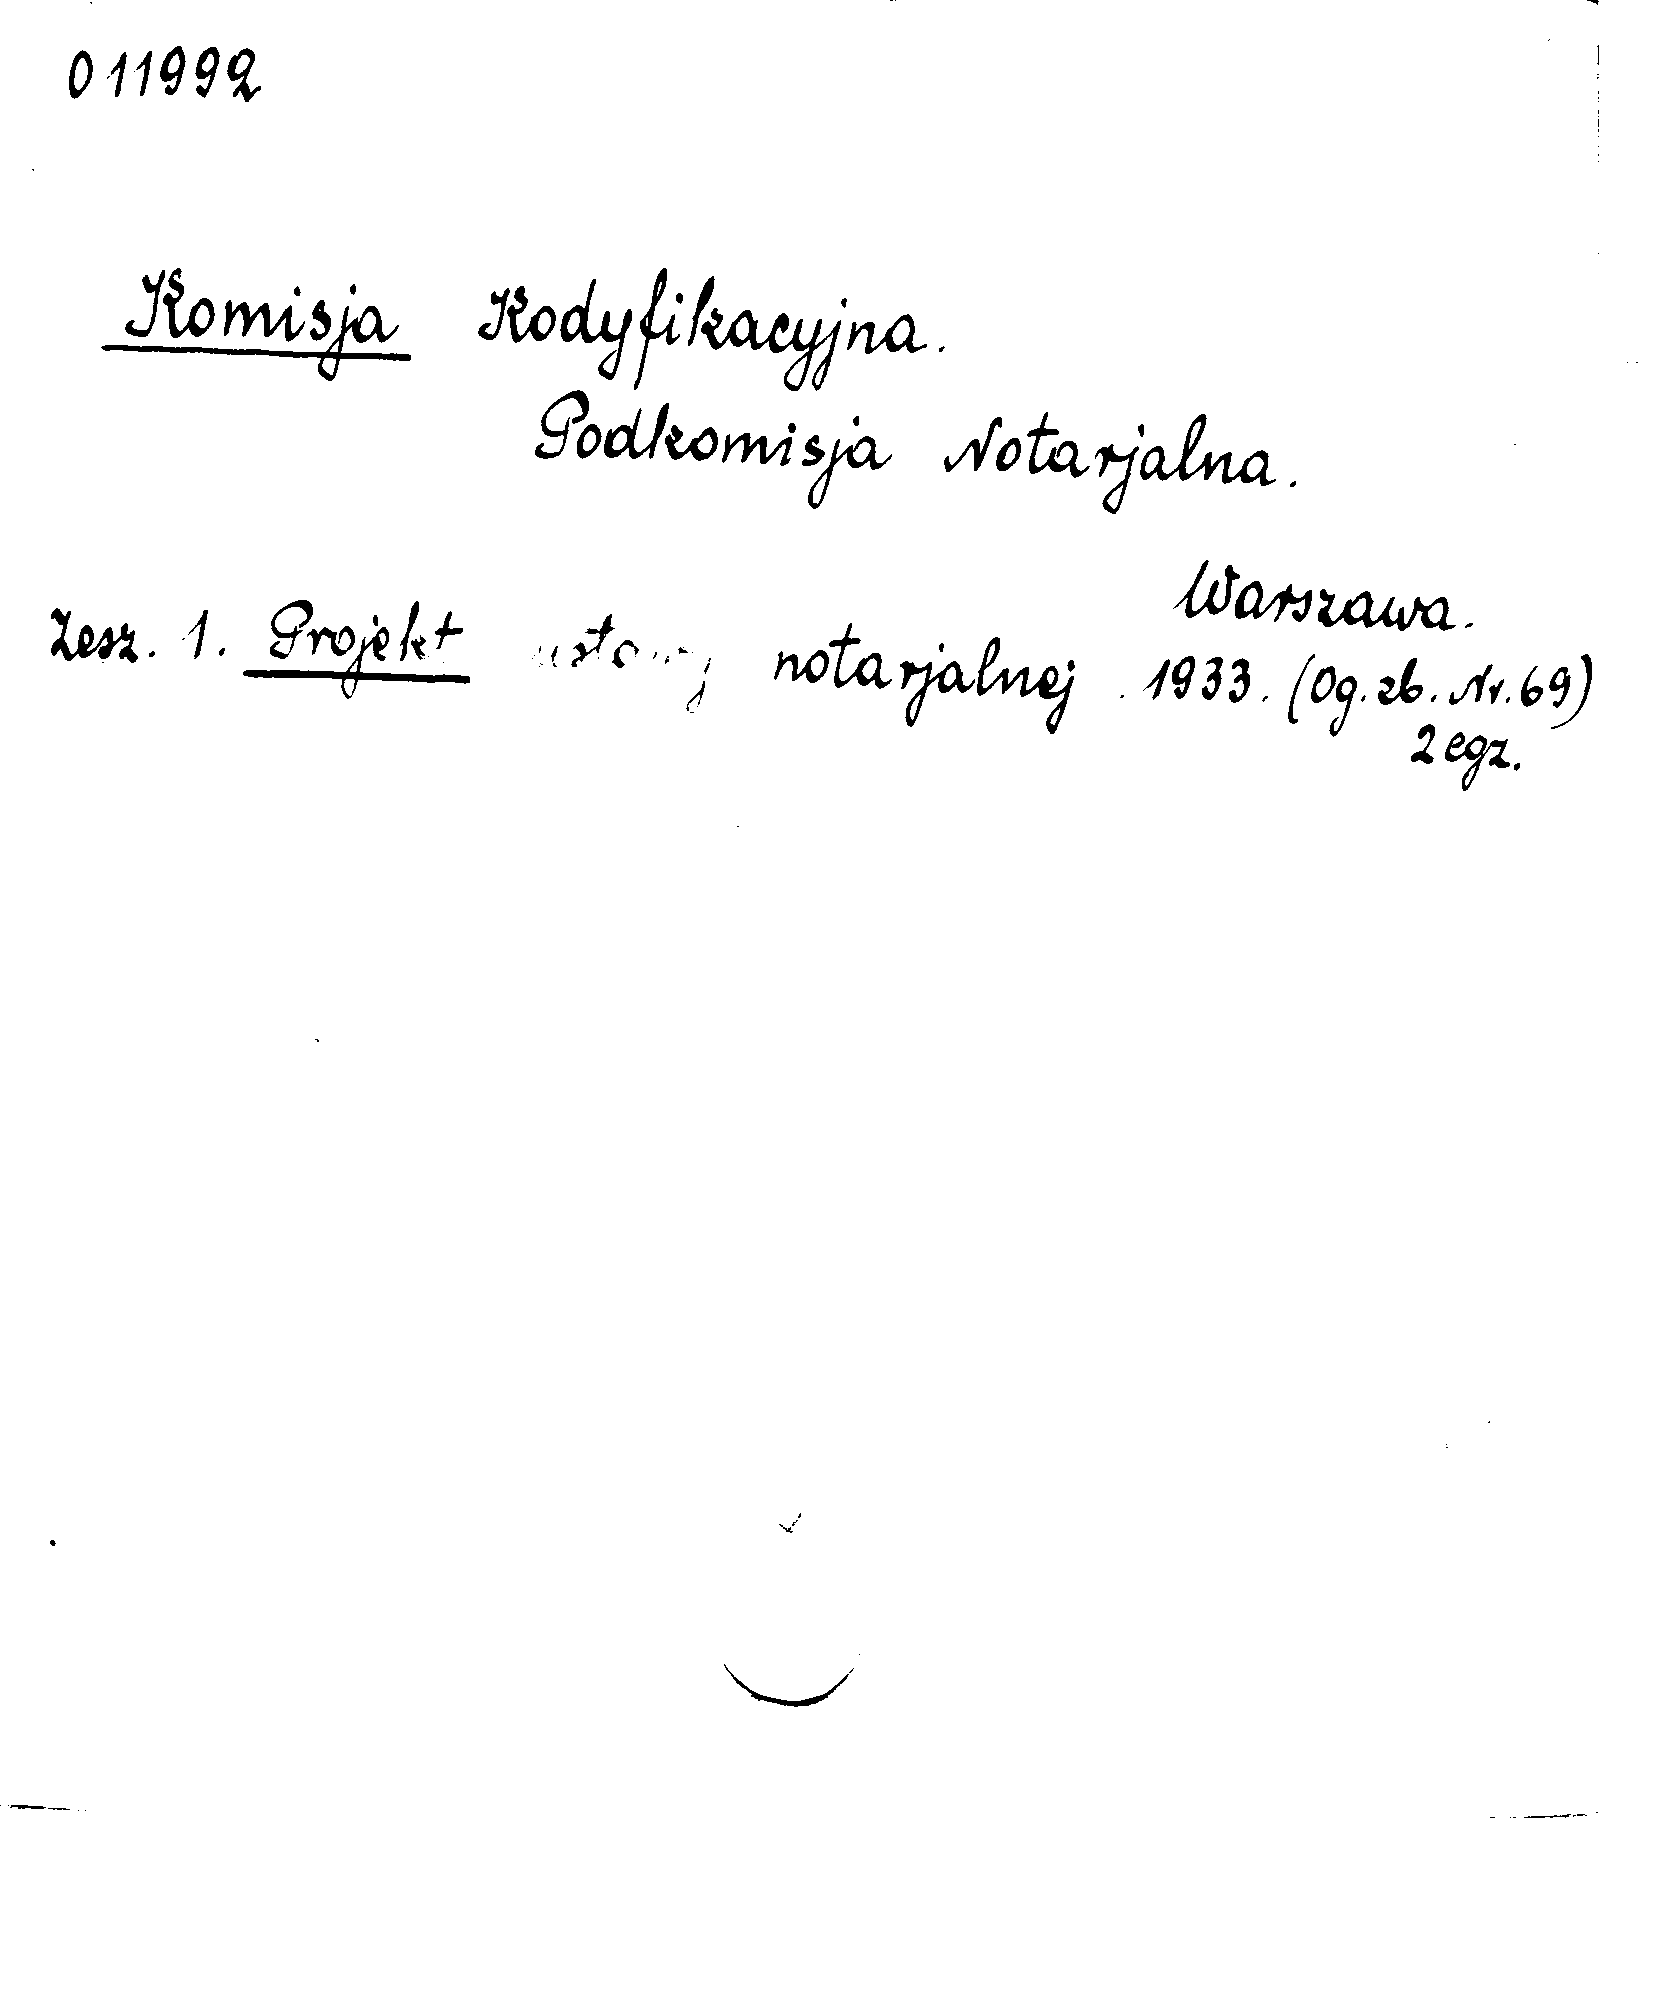 011992
Komisja Kodyfikacyjna.
Podkomisja Notarjalna.
Warszawa.
Zesz. 1. Projekt ustawy notarjalnej. 1933. (Og. zb. Nr. 69)
2 egz.